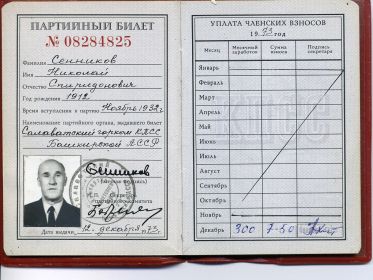 ПАРТИЙНЫЙ БИЛЕТ
№ 08284825
Фамилия Сенников
Имя Николай
Отчество Спиридонович
Год рождения 1912
Время вступления в партию Ноябрь 1932 г.
Наименование партийного органа, выдавшего билет
Салаватский горком КПСС
Башкирской АССР
Сенников
(личная подпись)
М. П.
Дата выдачи 12 декабря 1973 г.
УПЛАТА ЧЛЕНСКИХ ВЗНОСОВ
1973 год
Месяц Месячный заработок Сумма взноса Подпись секретаря
Январь
Февраль
Март
Апрель
Май
Июнь
Июль
Август
Сентябрь
Октябрь
Ноябрь
Декабрь 300 7-50
КПСС